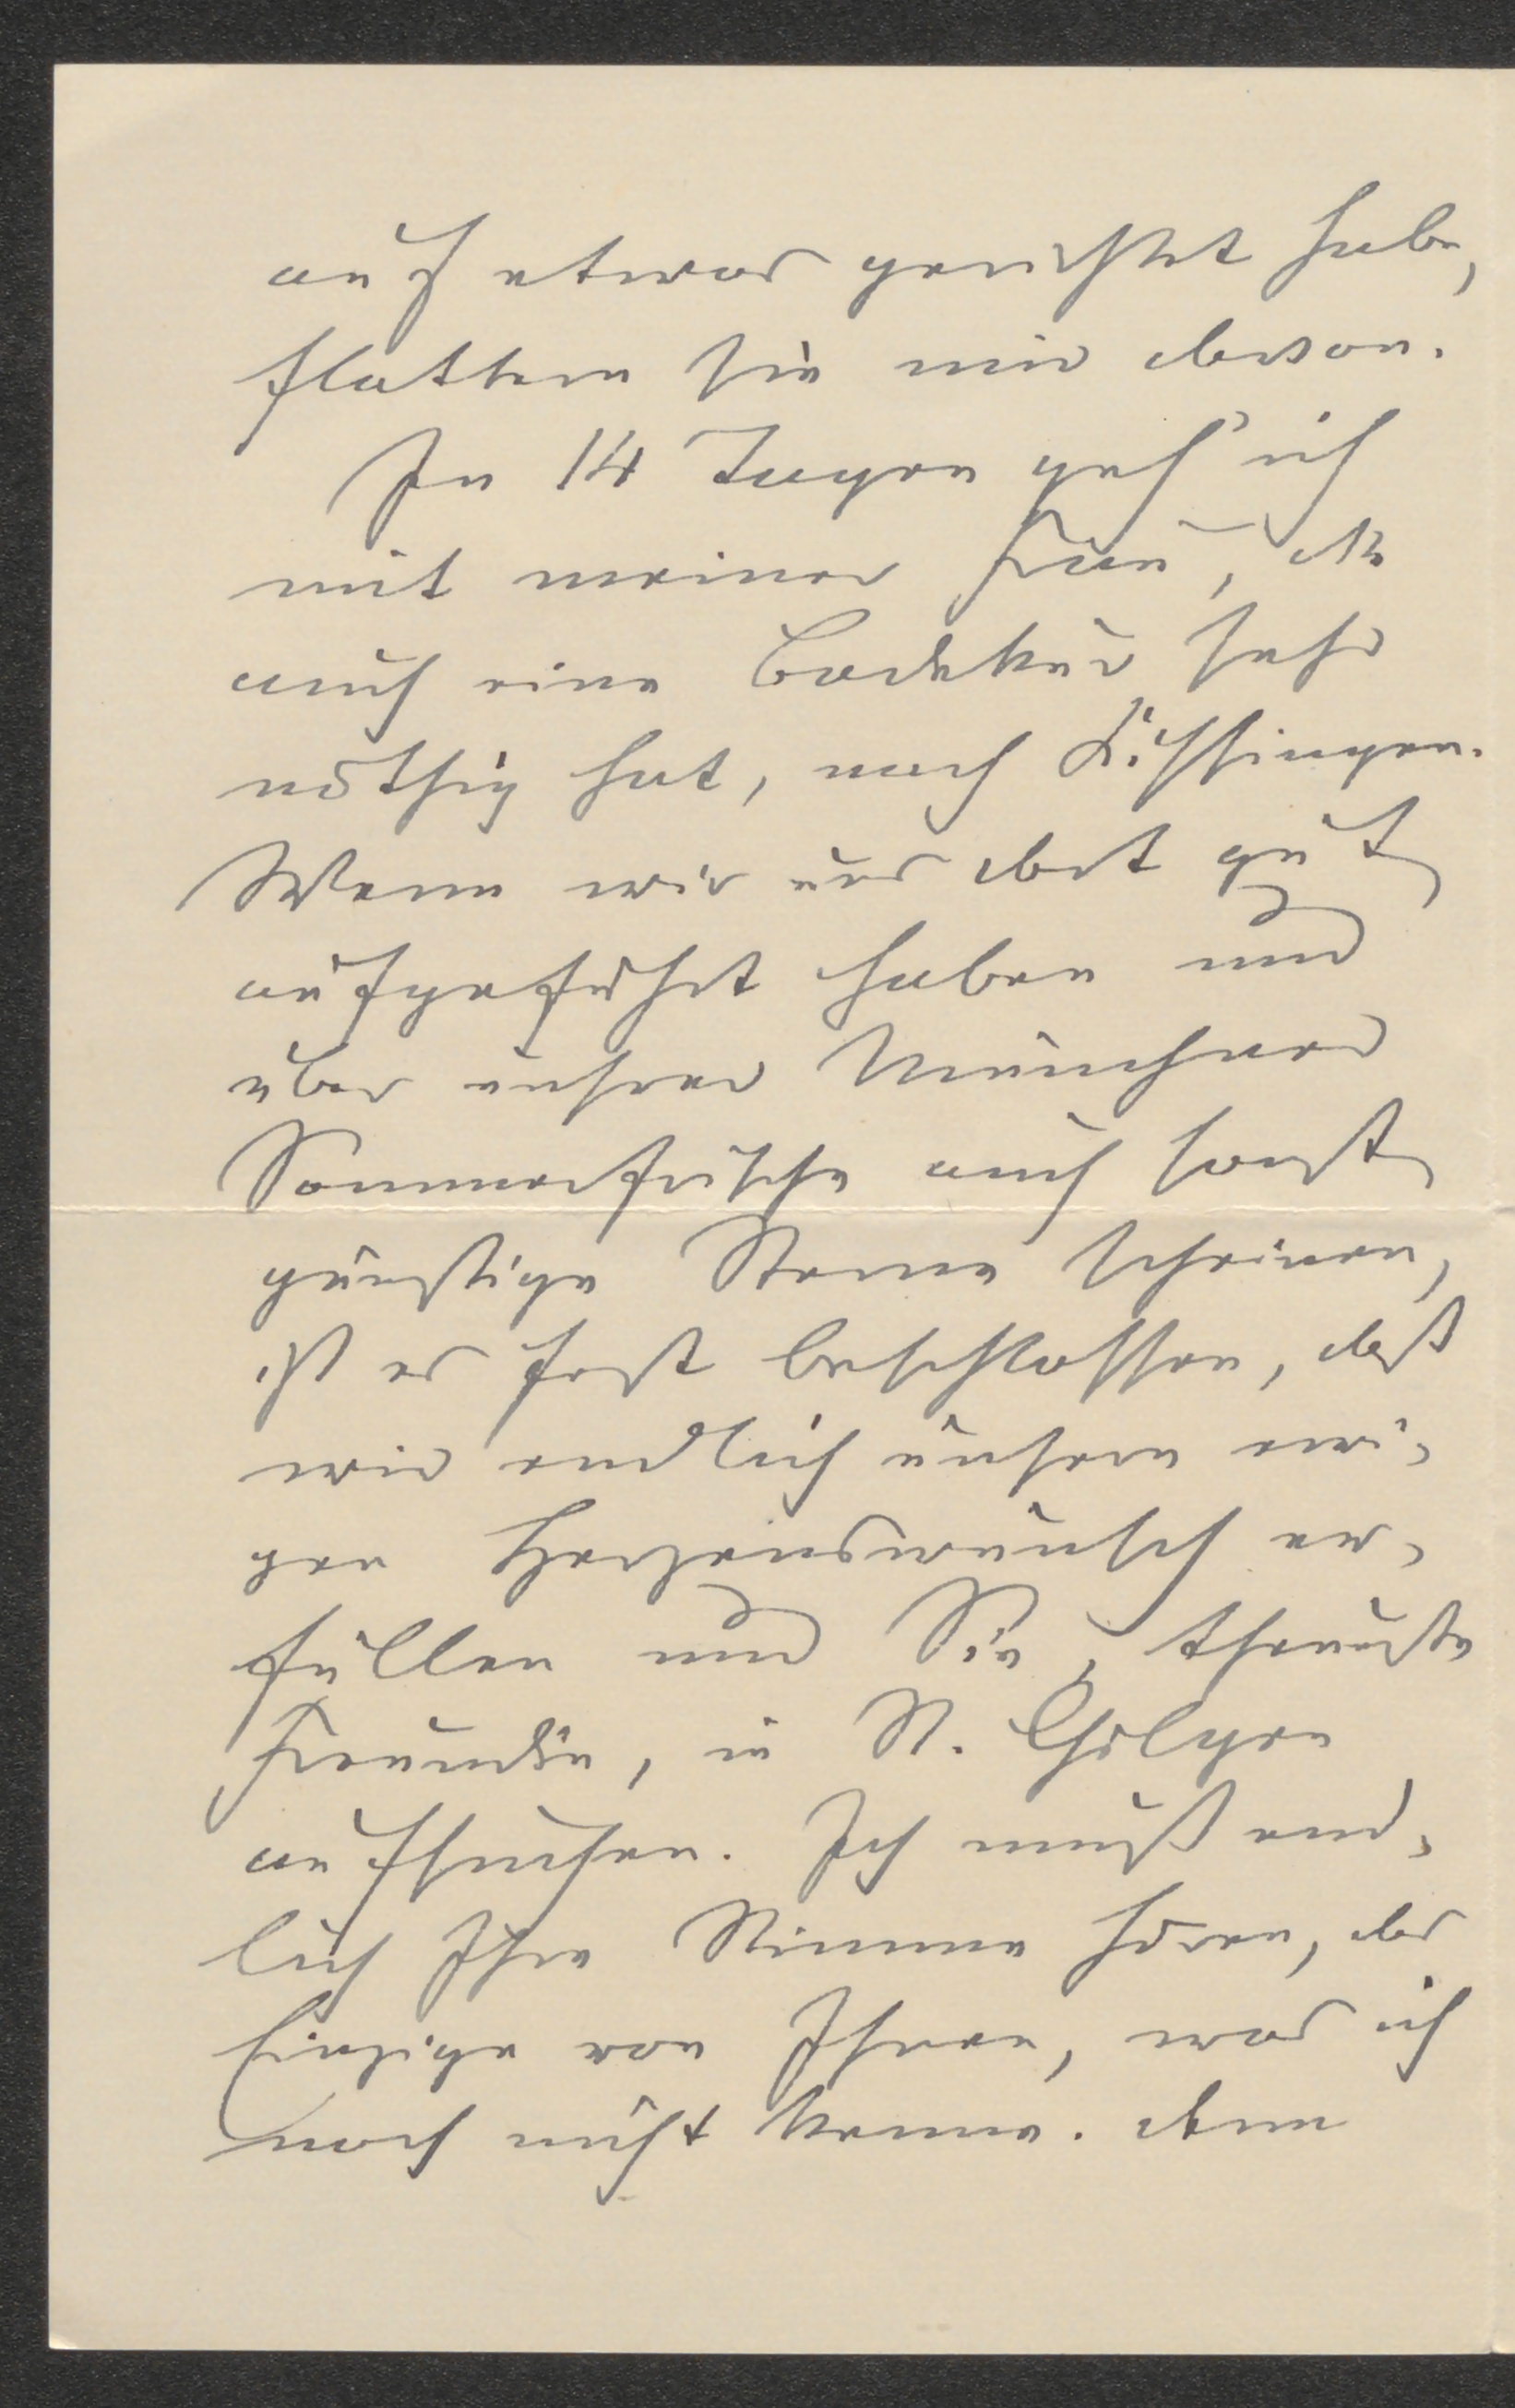 auf etwas gerichtet habe,
flattern sie mir davon.
In 14 Tagen geh' ich
mit meiner Frau, die
auch eine Badekur sehr
nöthig hat, nach Kissingen.
Wenn wir uns dort gut
aufgeführt haben und
über unsrer Münchner
Sommerfrische auch sonst
günstige Sterne scheinen,
ist es fest beschlossen, daß
wir endlich unsern ewi-
gen Herzenswunsch er-
füllen und Sie, theuerste
Freundin, in St. Gilgen
aufsuchen. Ich muß end-
lich Ihre Stimme hören, das
Einzige von Ihnen, was ich
noch nicht kenne. Denn